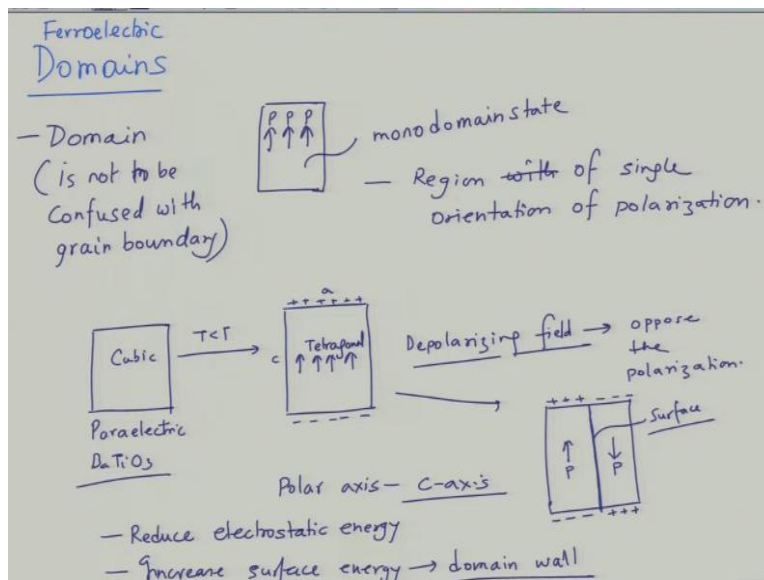 Ferroelectric
Domains
— Domain
(is not to be
confused with
grain boundary)
P P P
monodomain state
— Region with of single
orientation of polarization.
Cubic
Paraelectric
BaTiO3
T<T
a
+ + + + + +
c
Tetragonal
- - - - -
Depolarizing field → oppose
the
polarization.
+++ - - -
P
P
- - - +++
Surface
Polar axis — c-axis
— Reduce electrostatic energy
— Increase surface energy → domain wall